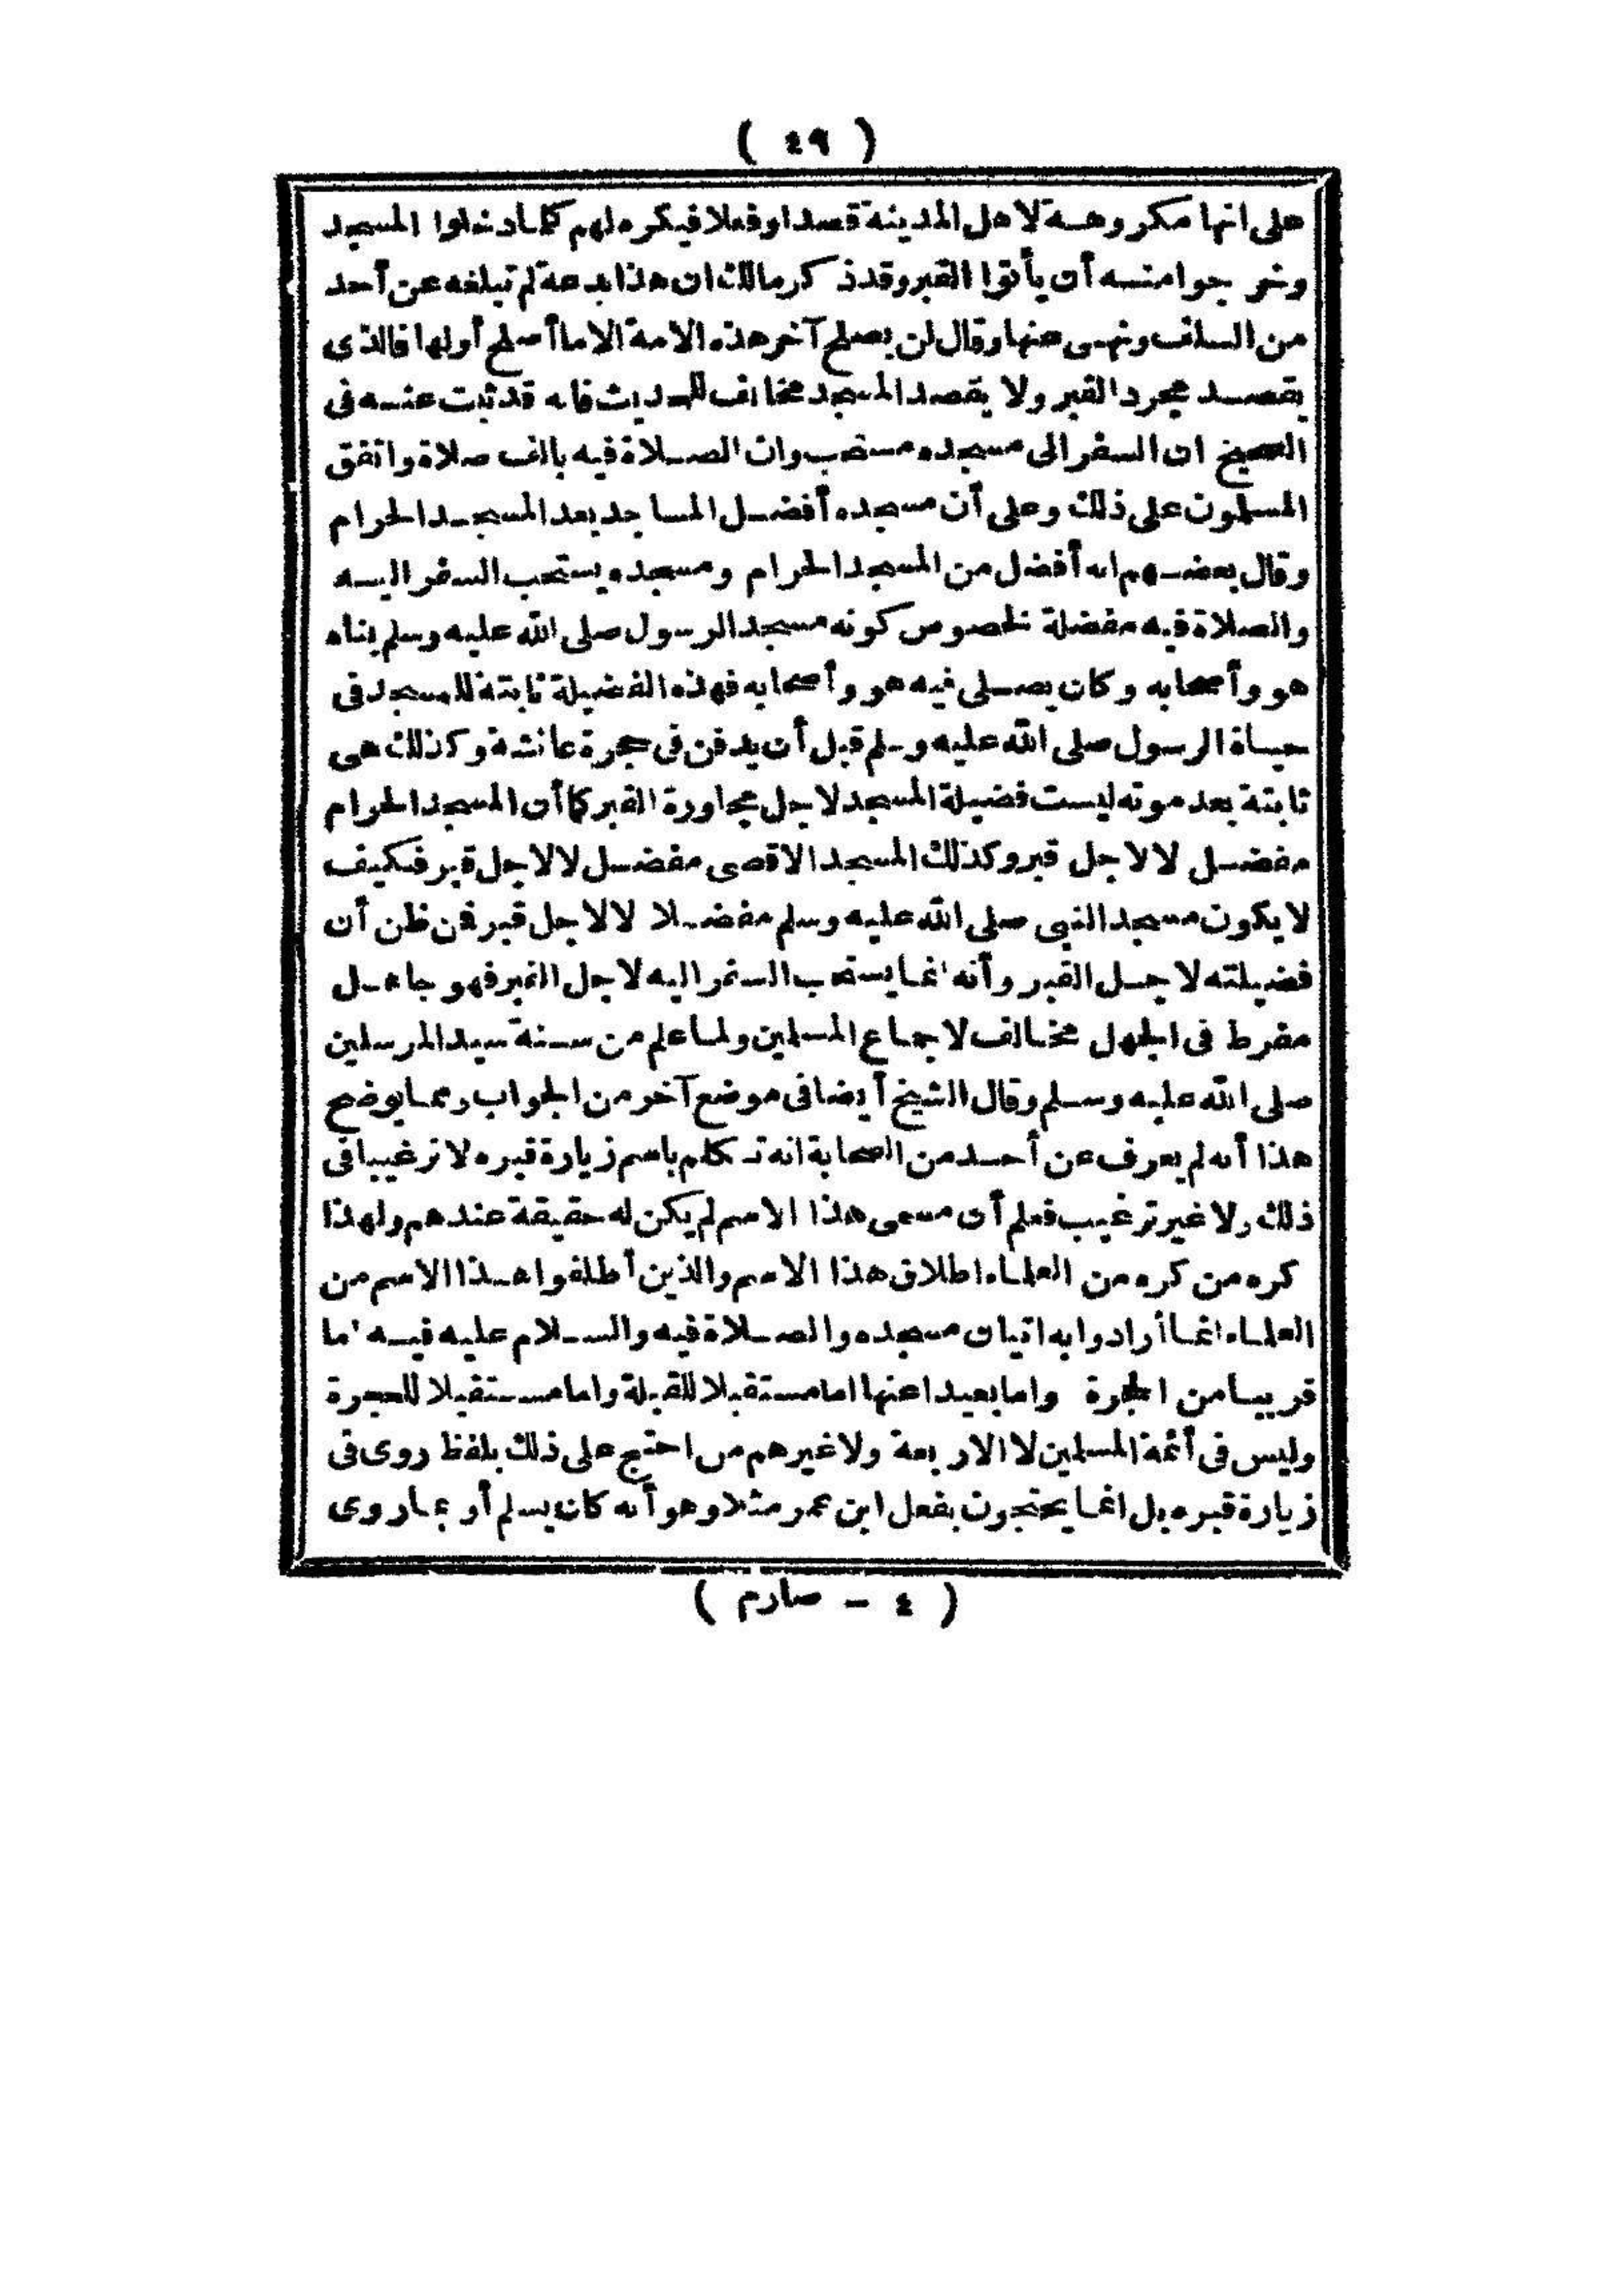 ( ٤٩ )
على انها مكروهة لاهل المدينة قصدا وفعلا فيكره لهم كلما دخلوا المسجد
وخرجوا منه أن يأتوا القبر وقد ذكر مالك ان هذا بدعة لم تبلغه عن أحد
من السلف ونهى عنها وقال لن يصلح آخر هذه الامة الا ما أصلح أولها فالذى
يقصد مجرد القبر ولا يقصد المسجد مخالف للحديث فانه قد ثبت عنه فى
الصحيح ان السفر الى مسجده مستحب وان الصلاة فيه بالف صلاة واتفق
المسلمون على ذلك وعلى أن مسجده أفضل المساجد بعد المسجد الحرام
وقال بعضهم انه أفضل من المسجد الحرام ومسجده يستحب السفر اليه
والصلاة فيه مفضلة لخصوص كونه مسجد الرسول صلى الله عليه وسلم بناه
هو وأصحابه وكان يصلى فيه هو وأصحابه فهذه الفضيلة ثابتة للمسجد فى
حياة الرسول صلى الله عليه وسلم قبل أن يدفن فى حجرة عائشة وكذلك هى
ثابتة بعد موته ليست فضيلة المسجد لاجل مجاورة القبر كما أن المسجد الحرام
مفضل لا لاجل قبر وكذلك المسجد الاقصى مفضل لا لاجل قبر فكيف
لا يكون مسجد النبى صلى الله عليه وسلم مفضلا لا لاجل قبر فمن ظن أن
فضيلته لاجل القبر وأنه انما يستحب السفر اليه لاجل القبر فهو جاهل
مفرط فى الجهل مخالف لاجماع المسلمين ولما علم من سنة سيد المرسلين
صلى الله عليه وسلم وقال الشيخ أيضا فى موضع آخر من الجواب ومما يوضح
هذا أنه لم يعرف عن أحد من الصحابة انه تكلم باسم زيارة قبره لا ترغيبا فى
ذلك ولا غير ترغيب فعلم أن مسمى هذا الاسم لم يكن له حقيقة عندهم ولهذا
كره من كره من العلماء اطلاق هذا الاسم والذين أطلقوا هذا الاسم من
العلماء انما أرادوا به اتيان مسجده والصلاة فيه والسلام عليه فيه اما
قريبا من الحجرة واما بعيدا عنها اما مستقبلا للقبلة واما مستقبلا للحجرة
وليس فى أئمة المسلمين لا الاربعة ولا غيرهم من احتج على ذلك بلفظ روى فى
زيارة قبره بل انما يحتجون بفعل ابن عمر مثلا وهو أنه كان يسلم أو بما روى
( ٤ - صارم )